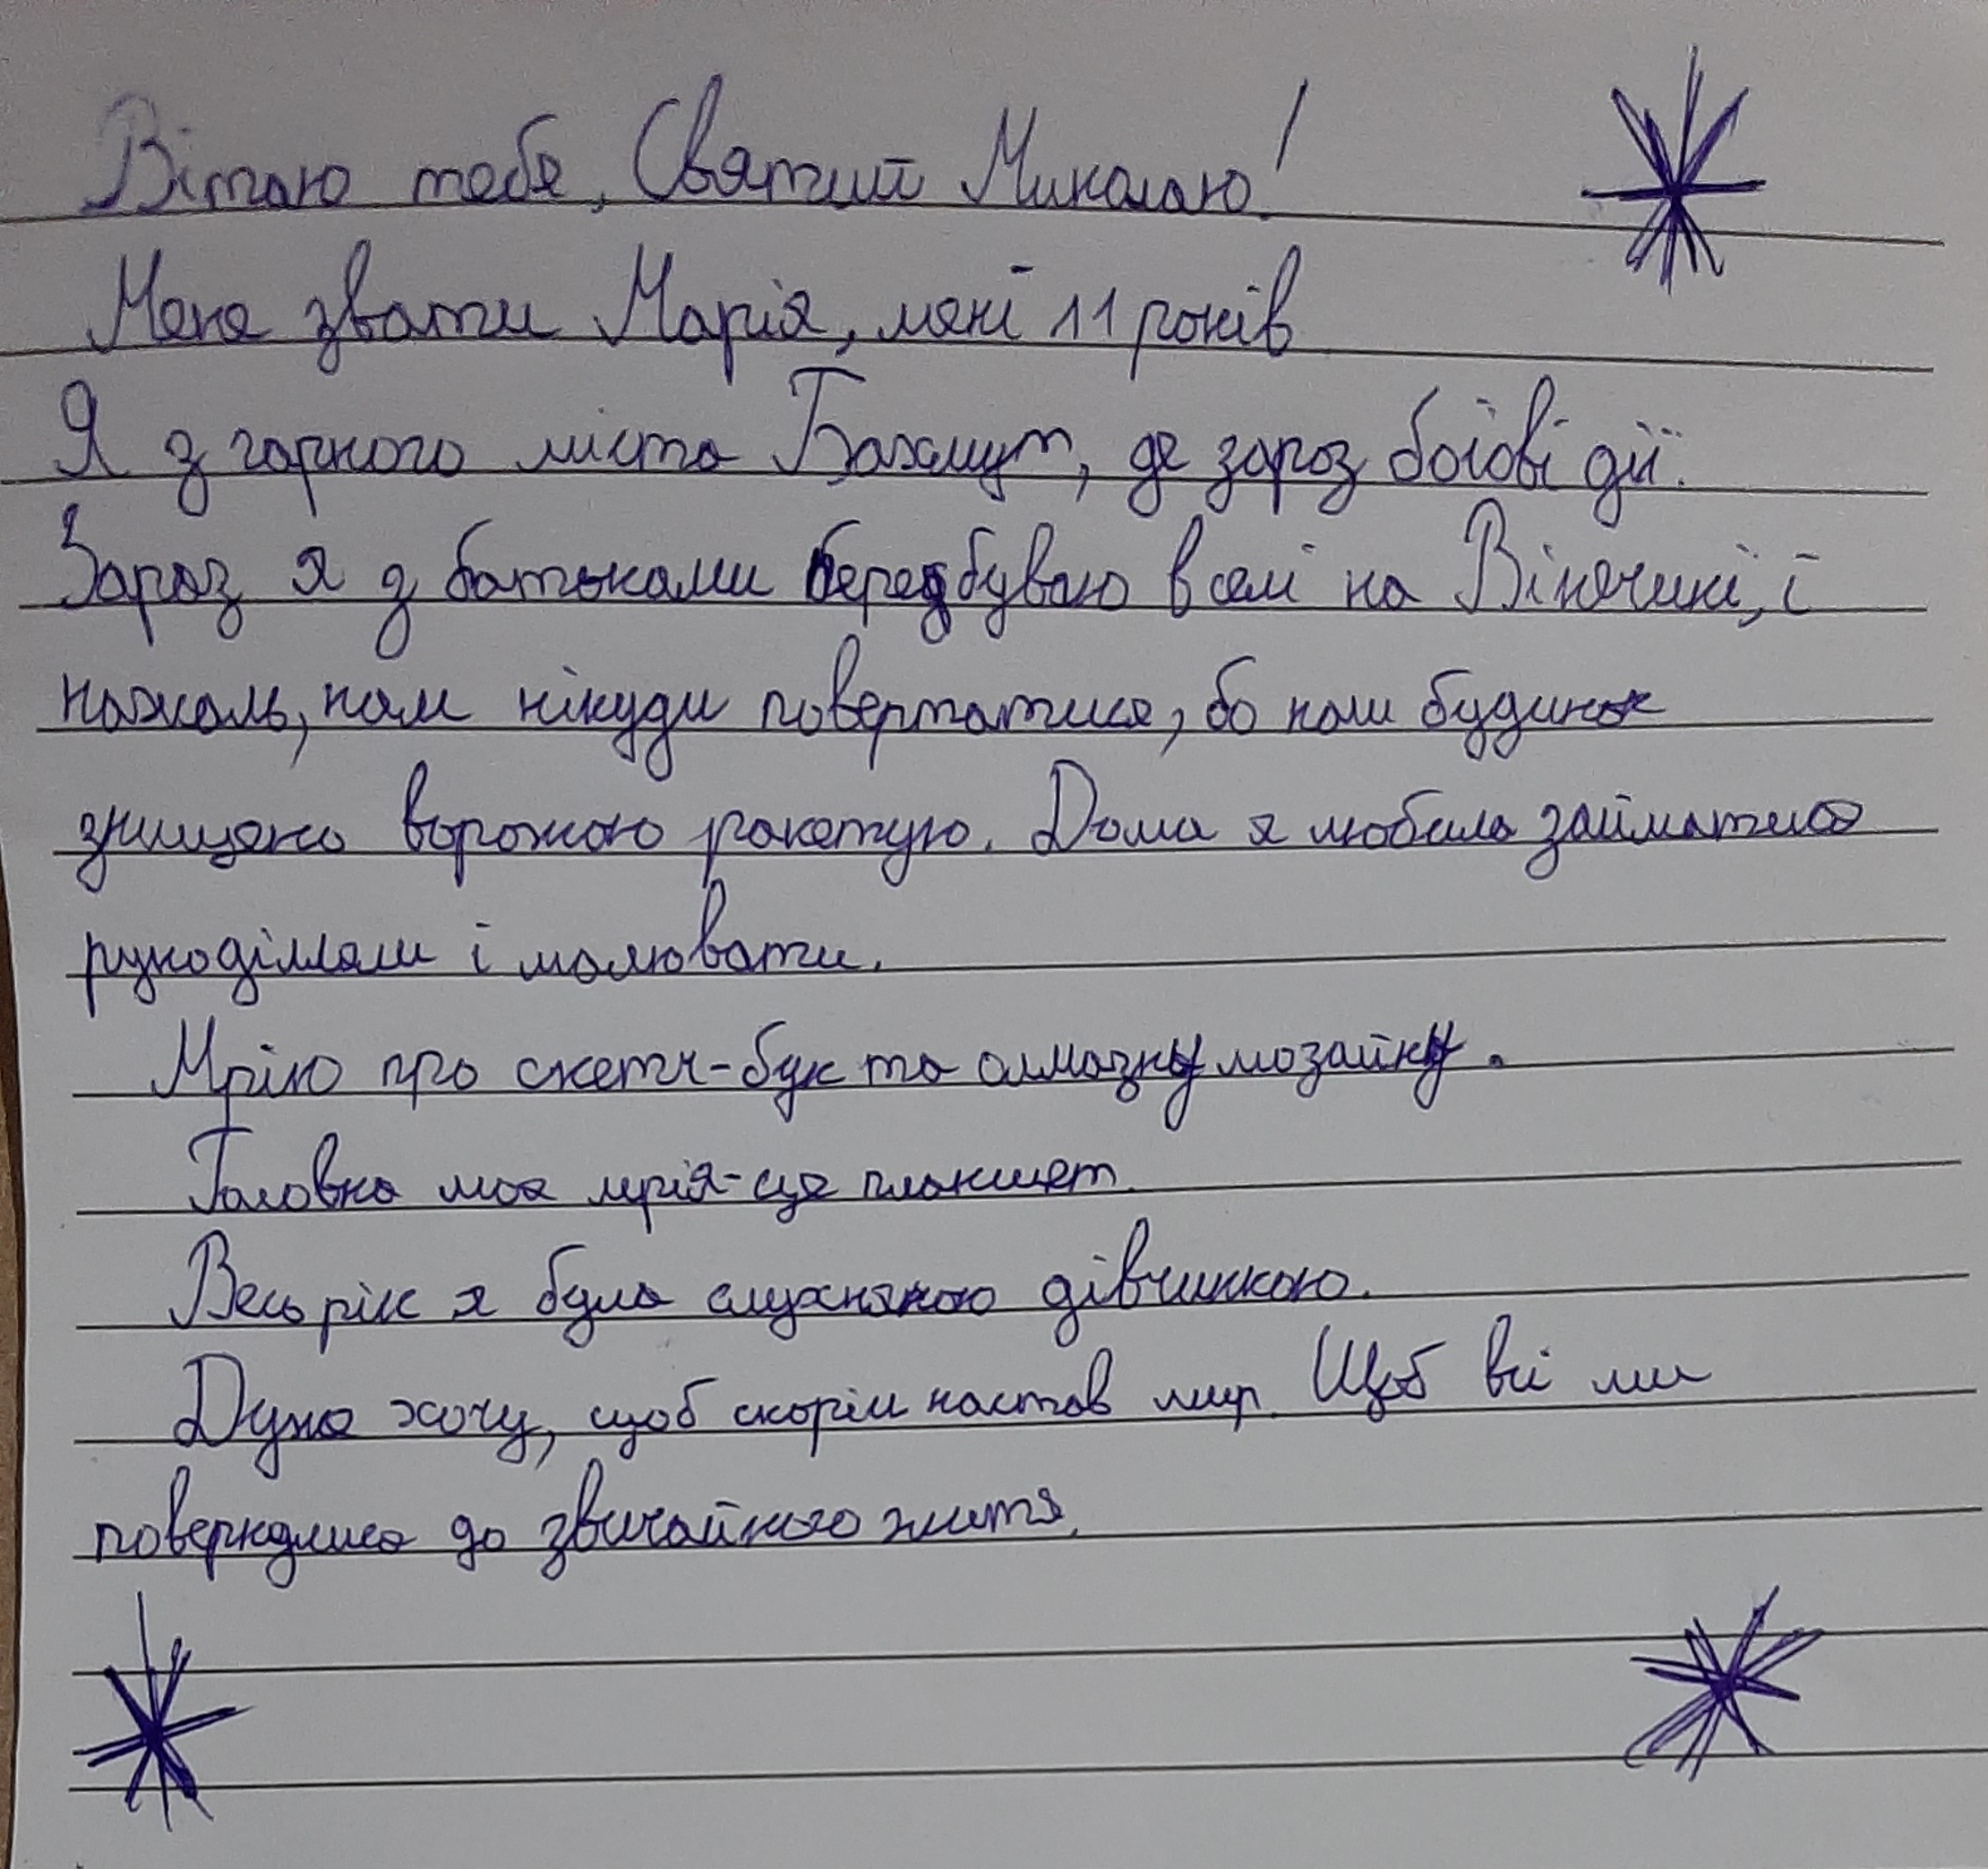 Вітаю тебе, Святий Миколаю!
Мене звати Марія, мені 11 років
Я з гарного міста Бахмут, де зараз боїові дії.
Зараз я з батьками передбуваю в селі на Віничині, і
нажаль, нам нікуди повертатися, бо наш будинок
знищено ворожою ракетую. Дома я любила займатися
рукоділлям і малювати.
Мрію про скетч-бук та алмазну мозайку.
Головна моя мрія-це планшет.
Весь рік я була слухняною дівчинкою.
Дуже хочу, щоб скоріш настав мир. Щоб всі ми
повернулися до звичайного життя.